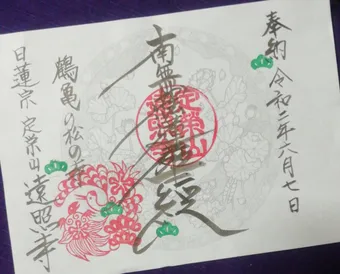 奉納 令和二年六月七日
南無妙法蓮華経
鶴亀の松の寺
日蓮宗 定栄山 遠照寺